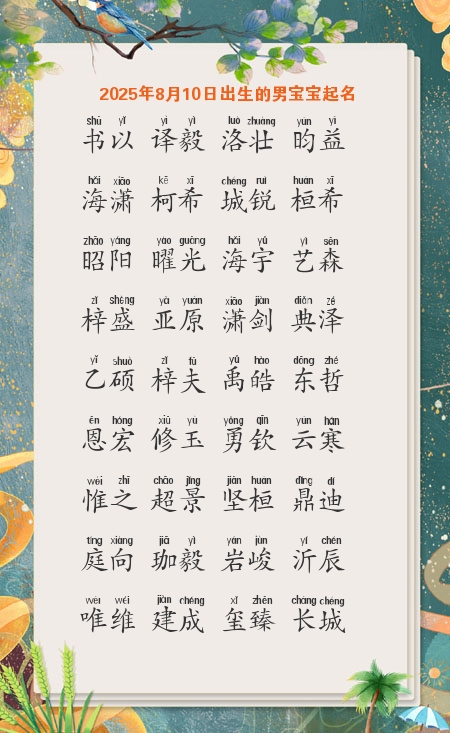 2025年8月10日出生的男宝宝起名
shū yǐ yì yì luò zhuàng yún yì
书以 译毅 洛壮 昀益
hǎi xiāo kē xī chéng ruì huán xī
海潇 柯希 城锐 桓希
zhāo yáng yào guāng hǎi yǔ yì sēn
昭阳 曜光 海宇 艺森
zǐ shèng yà yuán xiāo jiàn diǎn zé
梓盛 亚原 潇剑 典泽
yǐ shuò zǐ fū yǔ hào dōng zhé
乙硕 梓夫 禹皓 东哲
ēn hóng xiū yù yǒng qīn yún hán
恩宏 修玉 勇钦 云寒
wéi zhī chāo jǐng jiān huán dǐng dí
惟之 超景 坚桓 鼎迪
tíng xiàng jiā yì yán jùn yí chén
庭向 珈毅 岩峻 沂辰
wéi wéi jiàn chéng xǐ zhēn cháng chéng
唯维 建成 玺臻 长城